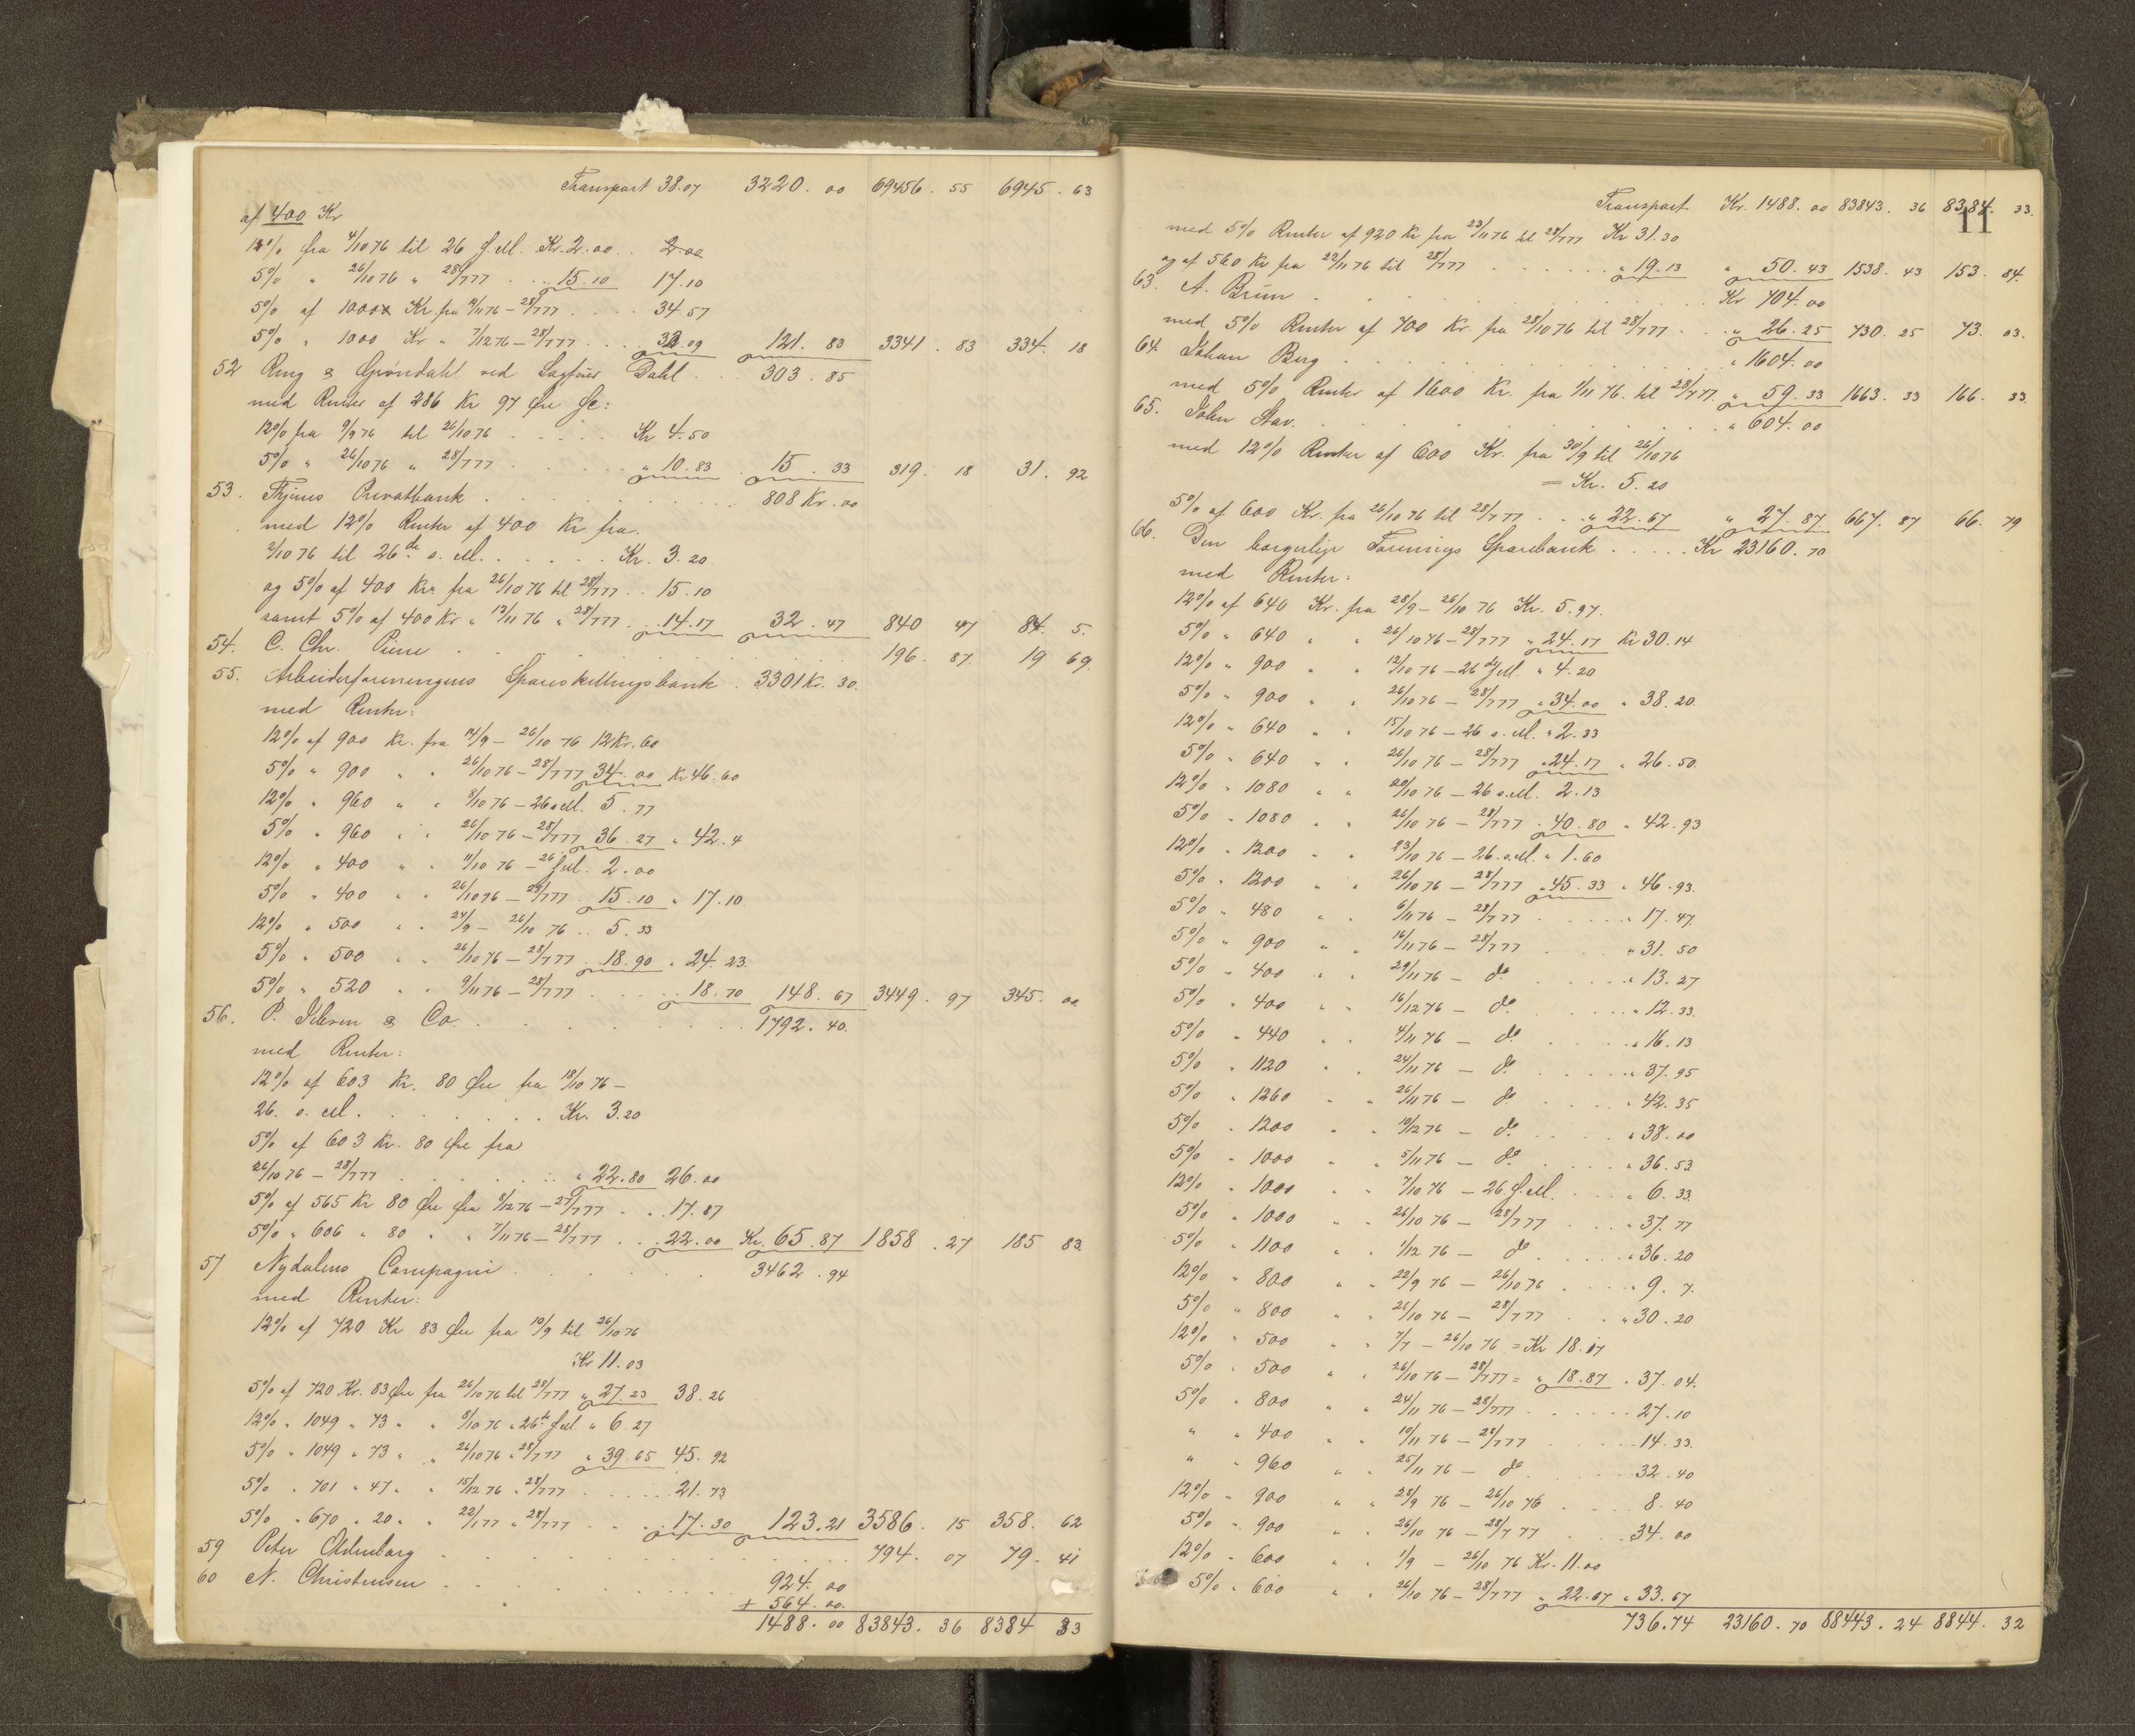 Transport 38.07 3220.00 69456.55 6945.63
af 400 Kr
12% fra 4/10 76 til 26 s. M. Kr. 2.00 2.00
5% " 26/10 76 " 28/7 77 . . 15.10 17.10
5% af 1000 Kr fra 4/11 76 – 28/7 77 . . . 34.57
5% " 1000 Kr " 7/12 76 – 28/7 77 . . . 32.09 121.83 3341.83 334.18
52 Ring & Grøndahl ved Sagfører Dahl . . 303.85
med Renter af 286 Kr 97 Øre
12% fra 9/9 76 til 26/10 76 . . . . . Kr 4.50
5% " 26/10 76 " 28/7 77 . . . . . " 10.83 15.33 319.18 31.92
53. Privatbank . . . . . . . 808 Kr.00
med 12% Renter af 400 Kr fra
2/10 76 til 26de s. M. . . . . . Kr. 3.20
og 5% af 400 Kr fra 26/10 76 til 28/7 77 . . 15.10
samt 5% af 400 Kr " 13/11 76 " 28/7 77 . . 14.17 32.47 840 47 84. 5.
54. C. Chr. . . . . . . . . 196.87. 19 69.
55. Arbeiderforeningens Spareskillingsbank . 3301 Kr. 30.
med Renter:
12% af 900 Kr. fra 14/9 – 26/10 76 12 Kr. 60
5% " 900 " " 26/10 76 – 28/7 77 34.00 Kr 46.60
12% " 960 " " 8/10 76 – 26 s. M. 5.77
5% " 960 " " 26/10 76 – 28/7 77 36.27 " 42.4
12% " 400 " " 11/10 76 – 26 s. M. 2.00
5% " 400 " " 26/10 76 – 28/7 77 . 15.10 " 17.10
12% " 500 " " 24/9 – 26/10 76 . . 5.33
5% " 500 " " 26/10 76 – 28/7 77 . 18.90 " 24.23
5% " 520 " " 9/11 76 – 28/7 77 . . . . 18.70 148.67 3449.97 345.00
56. P. & Co. . . . . . . . . 1792.40.
med Renter:
12% af 603 Kr. 80 Øre fra 18/10 76 –
26. s. M. . . . . . . . Kr. 3.20
5% af 603 Kr. 80 Øre fra
26/10 76 – 28/7 77 . . . . . " 22.80 26.00
5% af 565 Kr 80 Øre fra 8/12 76 – 27/7 77 . . 17.87
5% " 606 " 80 " " 7/11 76 – 28/7 77 . . 22.00 Kr. 65.87 1858.27 185 83.
57 Nydalens Compagni . . . . . 3462.94
med Renter:
12% af 720 Kr 83 Øre fra 10/9 til 26/10 76
Kr 11.03
5% af 720 Kr. 83 Øre fra 26/10 76 til 28/7 77 " 27.23 38.26
12% " 1049 " 73 " " 8/10 76 " 26de s. M. " 6.27
5% " 1049 " 73 " " 26/10 76 " 28/7 77 " 39.65 45.92
5% " 701 " 47 " " 15/12 76 " 28/7 77 . . . . . 21.73
5% " 670 " 20 " " 22/1 77 " 28/7 77 . . . 17.30 123.21 3586.15 358.62
59 Peter Oldenborg . . . . . . . 794.07 79.41
60 N. Christensen . . . . . . . 924.00
+ 564.00.
1488.00 83843.36 8384 33
Transport Kr. 1488.00 83843.36 8384.33.
11
med 5% Renter af 920 Kr fra 23/11 76 til 28/7 77 Kr 31.30
og af 560 Kr fra 22/11 76 til 28/7 77 . . . . . " 19.13 " 50.43 1538.43 153.84.
63. A. Bruun . . . . . . . . Kr 704.00
med 5% Renter af 700 Kr. fra 28/10 76 til 28/7 77 . . " 26.25 730.25 73.03.
64. Johan Berg . . . . . . . . " 1604.00
med 5% Renter af 1600 Kr. fra 1/11 76. til 28/7 77. " 59.33 1663.33 166.33.
65. John Stav. . . . . . . . . " 604.00
med 12% Renter af 600 Kr. fra 30/9 til 26/10 76
= Kr. 5.20
5% af 600 Kr. fra 26/10 76 til 28/7 77 . . " 22.67 " 27.87 667.87 66.79
66. Den borgerlige Forenings Sparebank . . . . . Kr 23160.70
med Renter:
12% af 640 Kr. fra 28/9 – 26/10 76 Kr. 5.97.
5% " 640 " " 26/10 76 – 28/7 77 " 24.17 Kr 30.14
12% " 900 " " 12/10 76 – 26de s. M. " 4.20
5% " 900 " " 26/10 76 – 28/7 77 " 34.00 " 38.20.
12% " 640 " " 15/10 76 – 26 s. M. " 2.33
5% " 640 " " 26/10 76 – 28/7 77 " 24.17 " 26.50
12% " 1080 " " 20/10 76 – 26 s. M. 2.13
5% " 1080 " " 26/10 76 – 28/7 77 . 40.80 " 42.93
12% " 1200 " " 23/10 76 – 26. s. M. " 1.60
5% " 1200 " " 26/10 76 – 28/7 77 " 45.33 " 46.93.
5% " 480 " " 6/11 76 – 28/7 77 . . . . . " 17.47.
5% " 900 " " 16/11 76 – 28/7 77 . . . " 31.50
5% " 400 " " 29/11 76 – do. . . . . " 13.27
5% " 400 " " 16/12 76 – do. . . . . " 12.33.
5% " 440 " " 4/11 76 – do . . . . " 16.13
5% " 1120 " " 24/11 76 – do. . . . . " 37.95
5% " 1260 " " 26/11 76 – do . . . . " 42.35
5% " 1200 " " 10/12 76 – do. . . . . " 38.00
5% " 1000 " " 5/11 76 – do. . . . . " 36.53
12% " 1000 " " 7/10 76 – 26. s. M. . . . " 6.33.
5% " 1000 " " 26/10 76 – 28/7 77 . . . " 37.77
5% " 1100 " " 1/12 76 – do . . . . " 36.20
12% " 800 " " 22/9 76 – 26/10 76 . . . . 9.7.
5% " 800 " " 26/10 76 – 28/7 77 . . . " 30.20
12% " 500 " " 7/7 – 26/10 76 = Kr 18.17
5% " 500 " " 26/10 76 – 28/7 77 = " 18.87 " 37.04.
5% " 800 " " 24/11 76 – 28/7 77 . . . . . 27.10
" " 400 " " 10/11 76 – 28/7 77 . . . . 14.33.
" " 960 " " 25/11 76 – do . . . . 32.40
12% " 900 " " 28/9 76 – 26/10 76 . . . . 8.40
5% " 900 " " 26/10 76 – 28/7 77 . . . 34.00
12% " 600 " " 1/9 – 26/10 76 Kr. 11.00
5% " 600 " " 26/10 76 – 28/7 77 " 22.67 " 33.67
736.74 23160.70 88443.24 8844.32